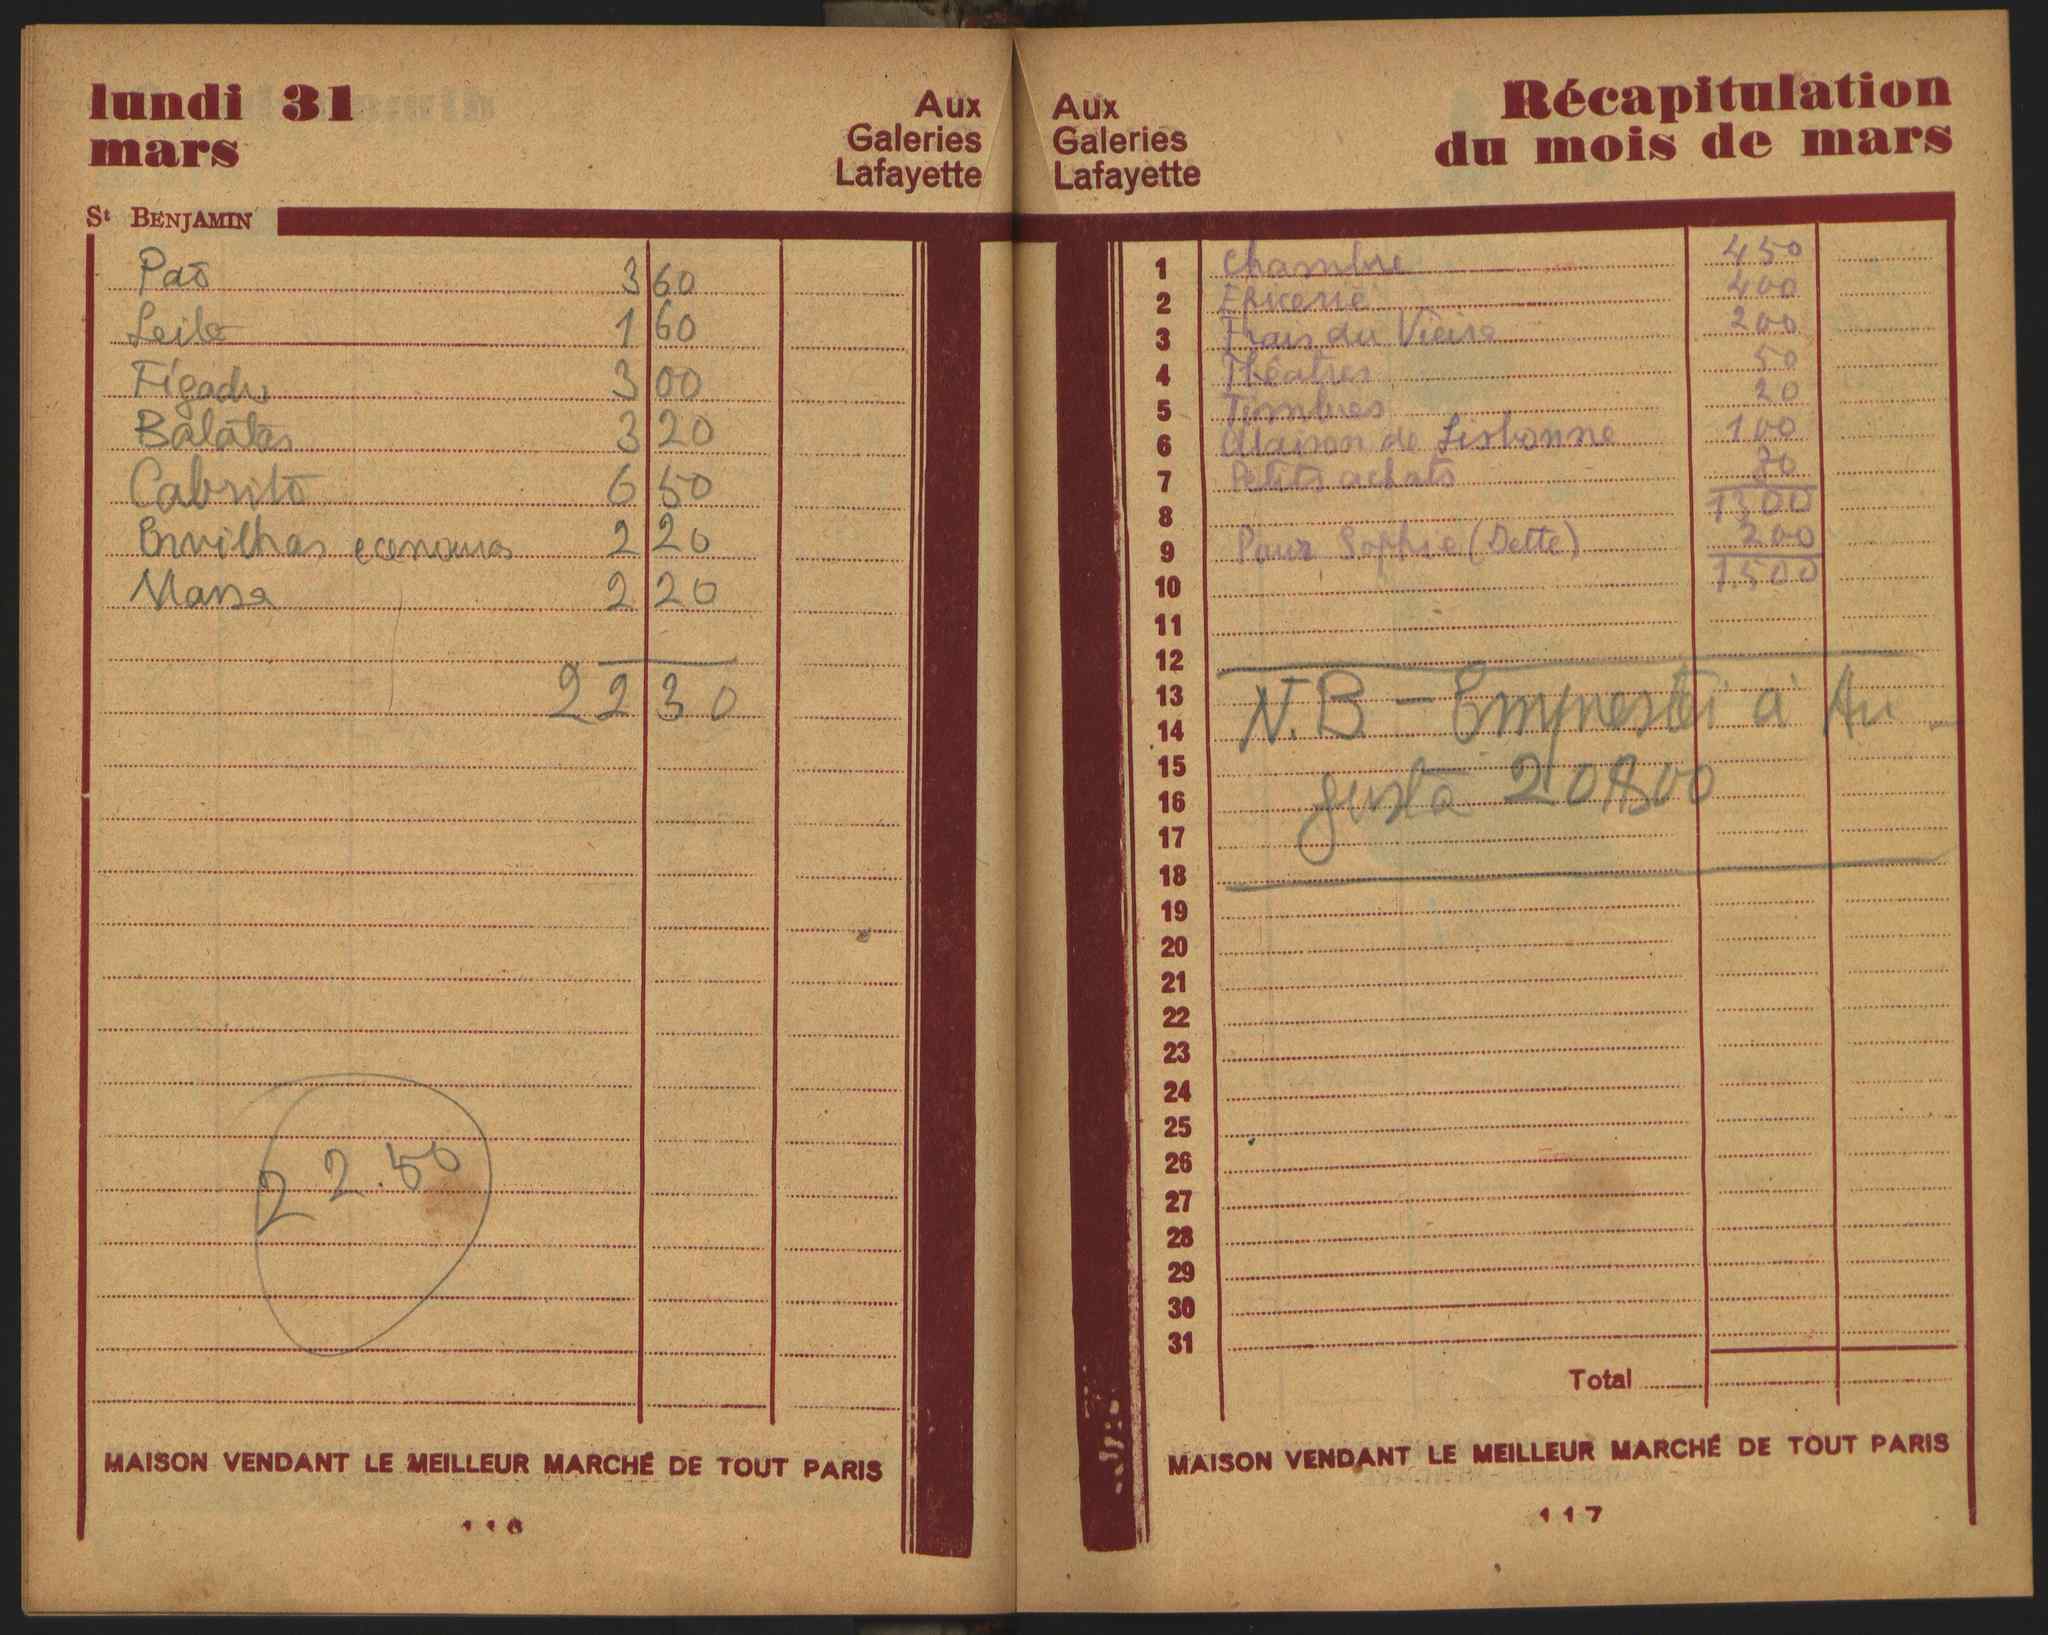 lundi 31
mars
Aux
Galeries
Lafayette
St BENJAMIN
Paõ 3 60
Leite 1 60
Fígado 3 00
Batatas 3 20
Cabrito 6 50
Ervilhas 2 20
Massa 2 20
22 30
22.50
MAISON VENDANT LE MEILLEUR MARCHÉ DE TOUT PARIS
116
Aux
Galeries
Lafayette
Récapitulation
du mois de mars
1 Chambre 450
2 Epicerie 400
3 Frais du Vieira 200
4 Théatres 50
5 Timbres 20
6 Maison de Lisbonne 100
7 Petits achats
8 1300
9 Pour Sophie (Dette) 200
10 1500
11
12
13 N.B. - Emprestei á Au-
14
15 gusta 20$00
16
17
18
19
20
21
22
23
24
25
26
27
28
29
30
31
Total
MAISON VENDANT LE MEILLEUR MARCHÉ DE TOUT PARIS
117